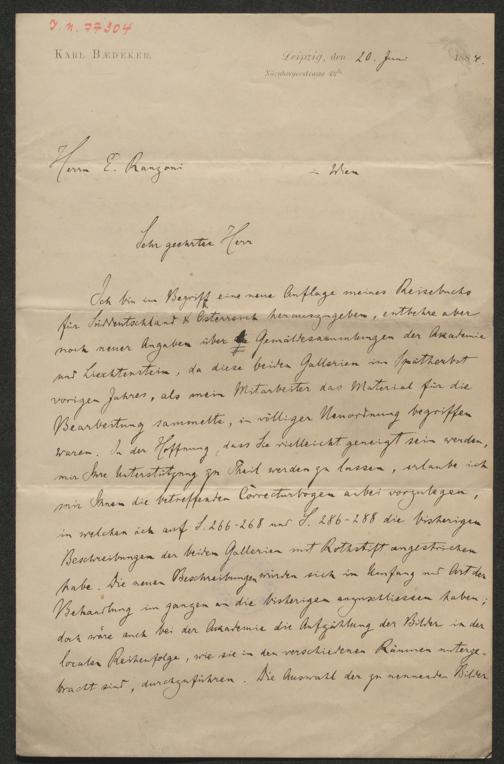 J. N. 77304
KARL BÆDEKER.
Leipzig, den 20. Juni 1884.
Nürnbergerstrasse
Herrn E. Ranzoni
– Wien
Sehr geehrter Herr
Ich bin im Begriff eine neue Auflage meines Reisebuchs
für Süddeutschland & Österreich herauszugeben, entbehre aber
noch neuer Angaben über die Gemäldesammlungen der Akademie
und Liechtenstein, da diese beiden Gallerien im Spätherbst
vorigen Jahres, als mein Mitarbeiter das Material für die
Bearbeitung sammelte, in völliger Neuordnung begriffen
waren. In der Hoffnung, dass Sie vielleicht geneigt sein werden,
mir Ihre Unterstützung zu Theil werden zu lassen, erlaube ich
mir Ihnen die betreffenden Correcturbogen anbei vorzulegen,
in welchen ich auf S. 266-268 und S. 286-288 die bisherigen
Beschreibungen der beiden Gallerien mit Rothstift angestrichen
habe. Die neuen Beschreibungen würden sich im Umfang und Art der
Behandlung im ganzen an die bisherigen anzuschliessen haben;
doch wäre auch bei der Akademie die Aufzählung der Bilder in der
localen Reihenfolge, wie sie in den verschiedenen Räumen unterge-
bracht sind, durchzuführen. Die Auswahl der zu nennenden Bilder